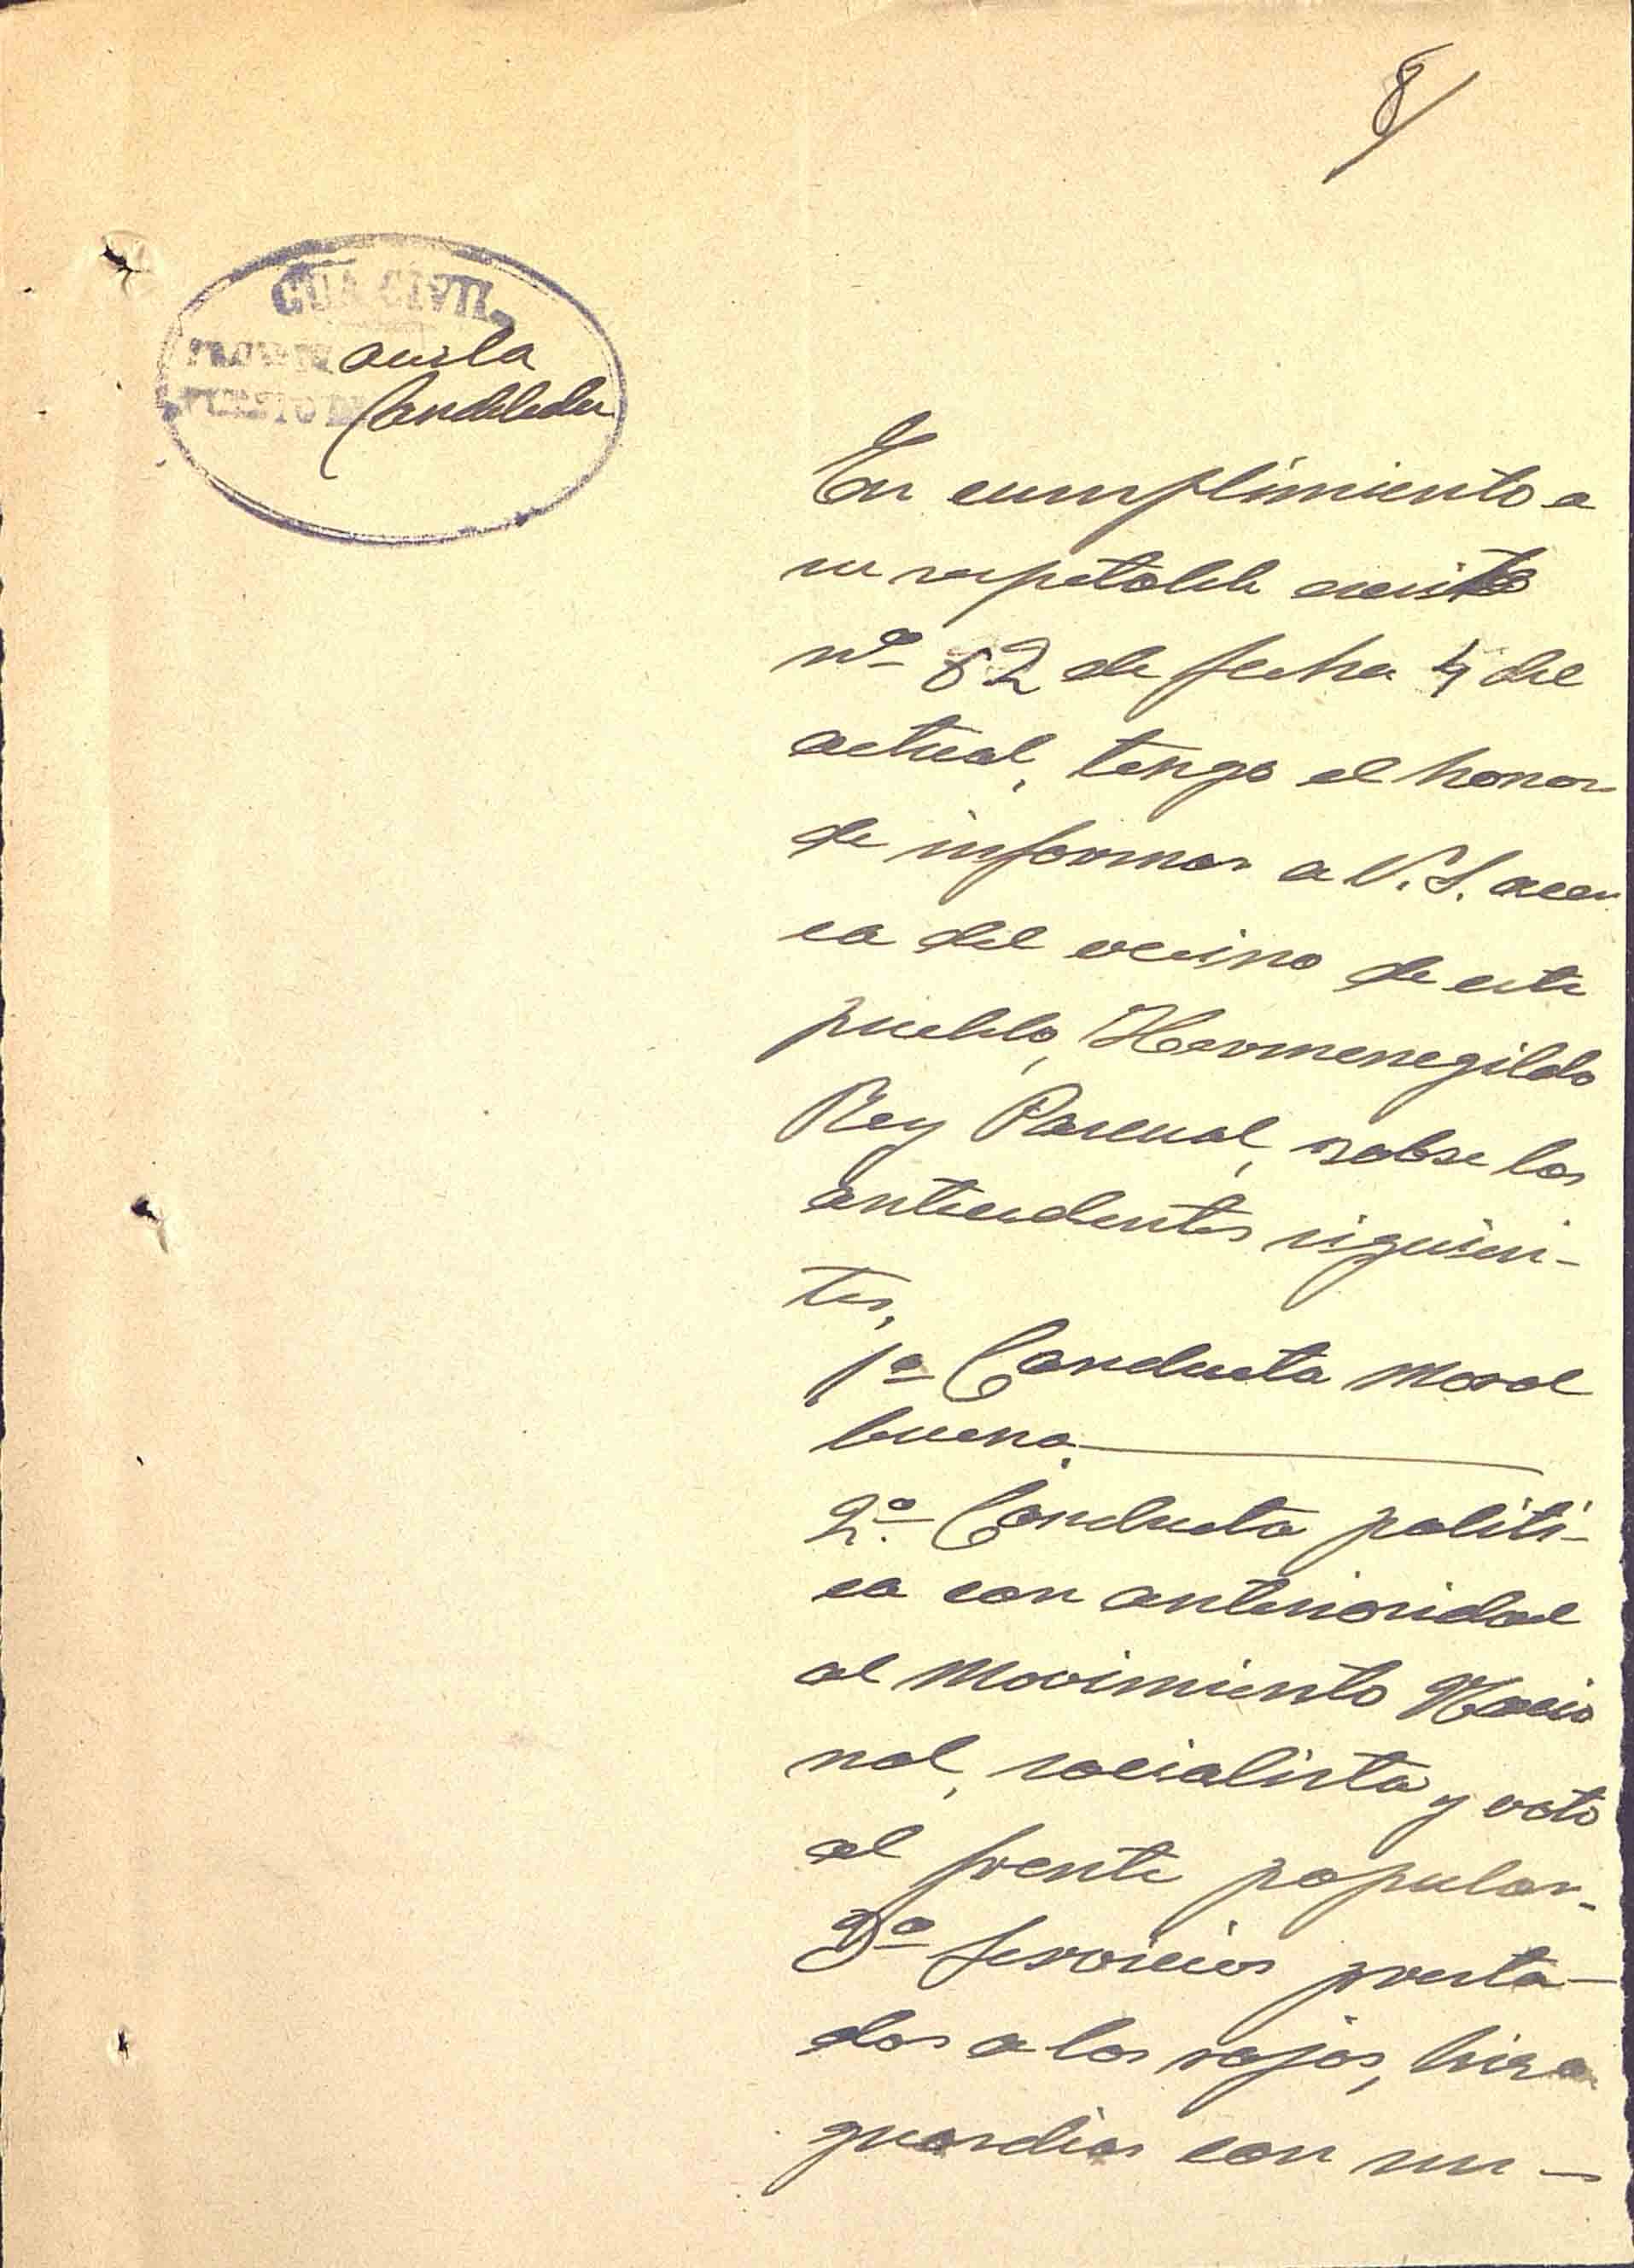 8
GUA CIVIL
avila
PUESTO DE Candeleda
En cumplimiento a
su respetable escrito
nº 62 de fecha 4 del
actual, tengo el honor
de informar a V.S. acer
ca del vecino de este
pueblo, Hermenegildo
Rey Pascual, sobre los
antecedentes siguien-
tes,
1ª Conducta moral
buena.
2ª. Conducta politi-
ca con anterioridad
al Movimiento Nacio
nal, socialista y voto
al frente popular.
3ª Servicios presta-
dos a los rojos, hizo
guardias con